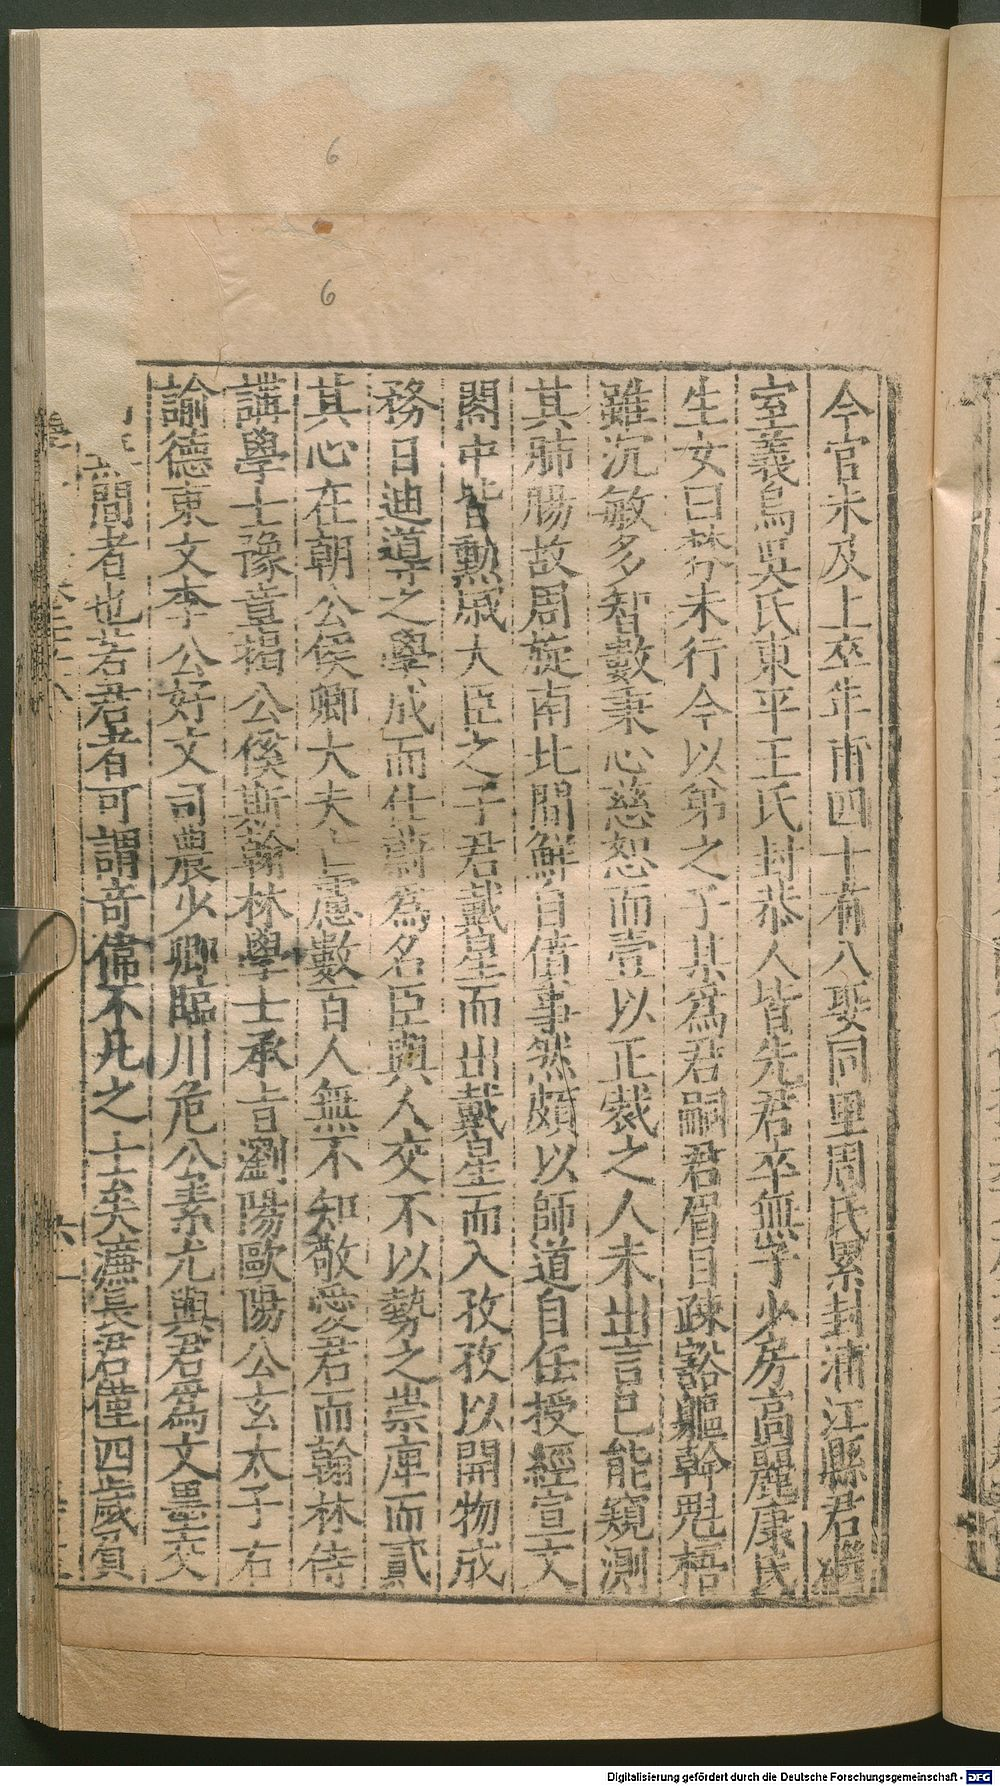 6
6
今官未及上卒年甫四十有八娶同里周氏累封浦江縣君繼
室義烏吳氏東平王氏封恭人皆先君卒無子少房高麗康氏
生女曰棽未行今以弟之子某爲君嗣君眉目疎豁軀幹魁梧
雖沉敏多智數秉心慈恕而壹以正裁之人未出言已能窺測
其肺腸故周旋南北間鮮自僨事然頗以師道自任授經宣文
閣中皆勳戚大臣之子君戴星而出戴星而入孜孜以開物成
務日迪導之學成而仕蔚爲名臣與人交不以勢之崇庳而貳
其心在朝公侯卿大夫亡慮數百人無不知敬愛君而翰林侍
講學士豫章揭公傒斯翰林學士承旨瀏陽歐陽公玄太子右
諭德東文李公好文司農少卿臨川危公素尤與君爲文墨交
間者也若君者可謂奇偉不凡之士矣濂長君僅四歲負
Digitalisierung gefördert durch die Deutsche Forschungsgemeinschaft - DFG